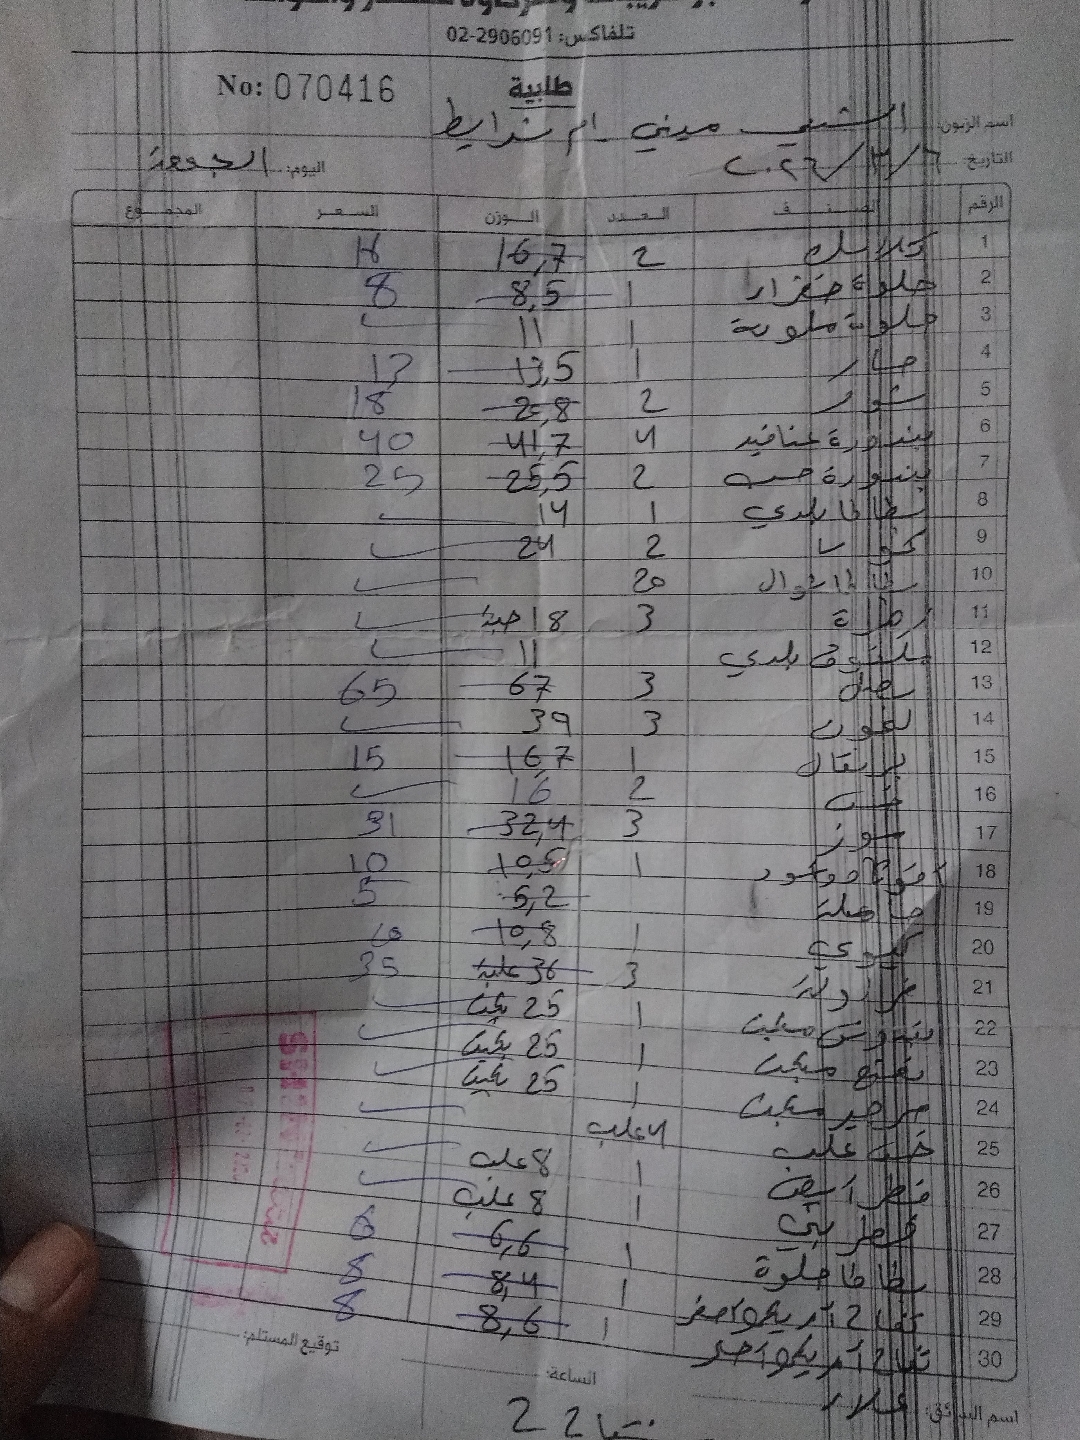 تلفاكس: 02-2906091
طلبية No: 070416
اسم الزبون: الشني ميني ام شرايط
التاريخ: ٢٠٢٦/٣/٦ اليوم: الجمعة
الرقم الصنف العدد الوزن السعر المجموع
1 2 16,7 16
2 حلوة خضراء 1 8,5 8
3 حلوة ملونة 1 11
4 حار 1 13,5 13
5 2 20,8 18
6 بندورة عناقيد 4 41,7 40
7 بندورة حب 2 25,5 25
8 بطاطا بلدي 1 14
9 كوسا 2 24
10 20
11 زهرة 3 18 حبة
12 ملفوف بلدي 11
13 بصل 3 67 65
14 ليمون 3 39
15 برتقال 1 16,7 15
16 خس 2 16
17 موز 3 32,4 31
18 افوكادو 1 10,5 10
19 5,2 5
20 كيوي 1 10,8 10
21 فراولة 3 36 علبة 35
22 بقدونس مكبت 1 25 بكيت
23 نعنع مكبت 1 25 بكيت
24 جرجير مكبت 1 25 بكيت
25 خس علب 4 علب
26 فطر ابيض 1 8 علب
27 فطر بني 1 8 علب
28 بطاطا حلوة 1 6,6 6
29 تفاح امريكي اصفر 1 8,4 8
30 تفاح امريكي احمر 1 8,6 8
توقيع المستلم:
الساعة:
اسم السائق: علاء
22